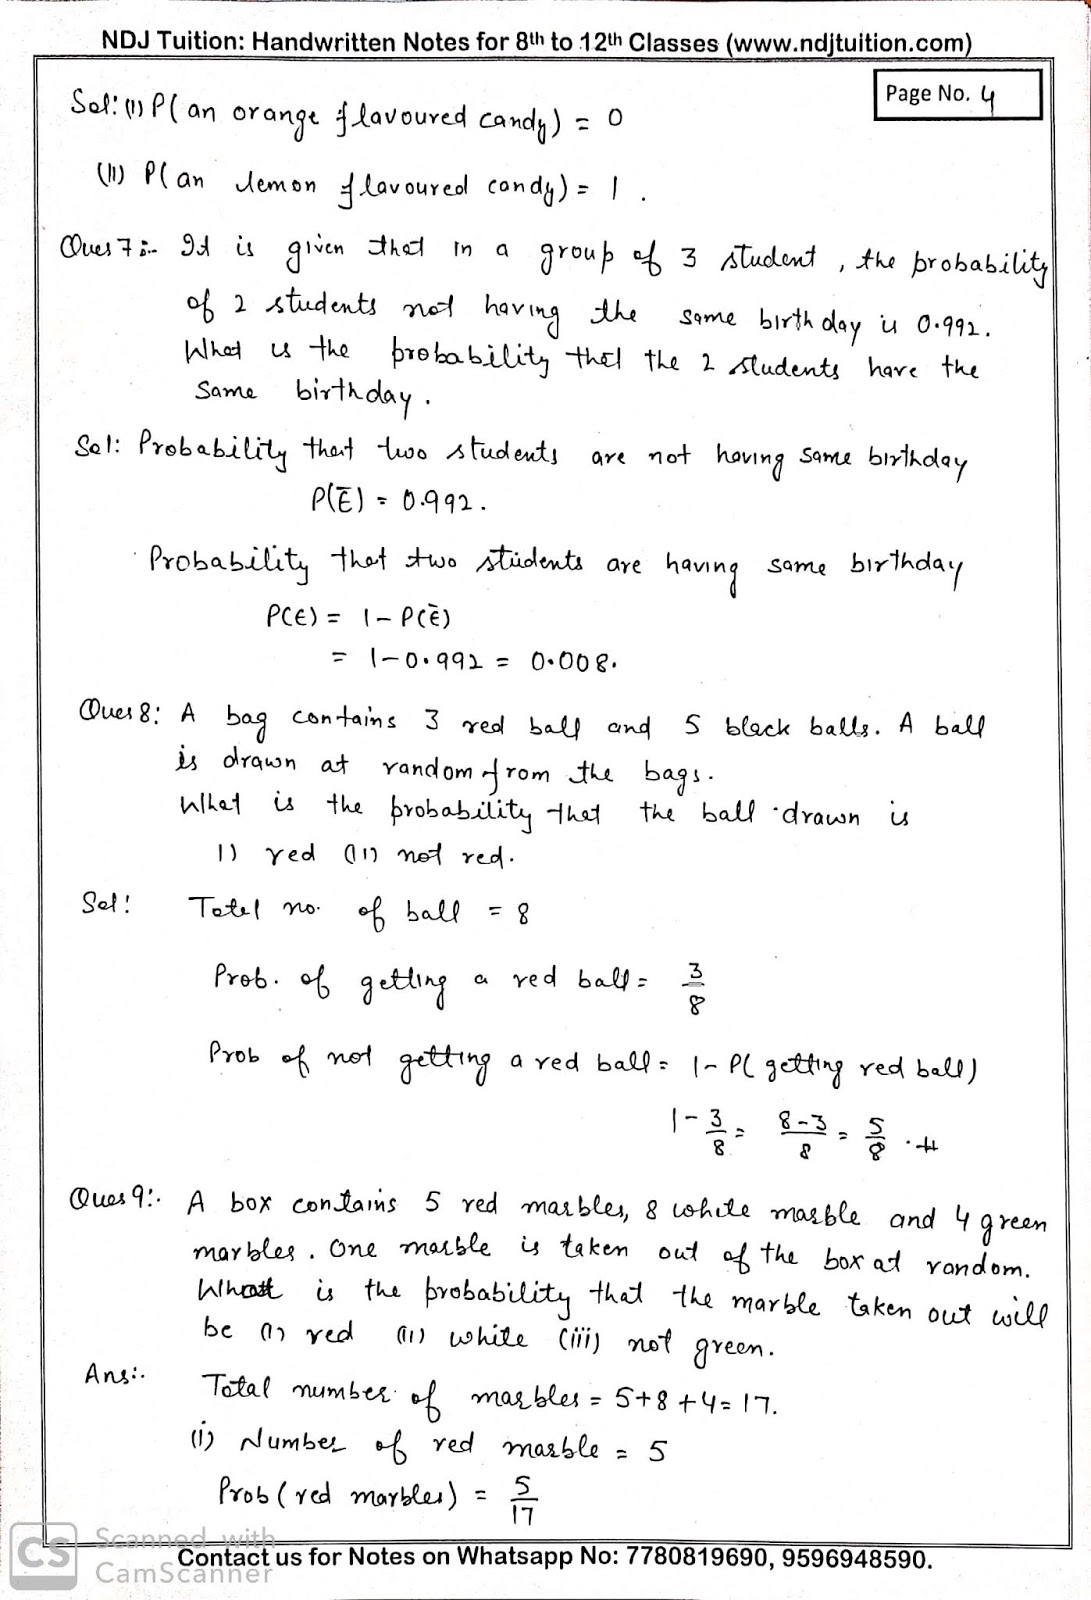 NDJ Tuition: Handwritten Notes for 8th to 12th Classes (www.ndjtuition.com)
Page No. 4
Sol: (i) P( an orange flavoured candy) = 0
(II) P( an lemon flavoured candy) = 1 .
Ques 7:- It is given that in a group of 3 student , the probability
of 2 students not having the same birthday is 0.992.
What is the probability that the 2 students have the
same birthday.
Sol: Probability that two students are not having same birthday
P(Ē) = 0.992.
Probability that two students are having same birthday
P(E) = 1 - P(Ē)
= 1-0.992 = 0.008.
Ques 8: A bag contains 3 red ball and 5 black balls. A ball
is drawn at random from the bags.
What is the probability that the ball drawn is
1) red (II) not red.
Sol: Total no. of ball = 8
Prob. of getting a red ball = 3/8
Prob of not getting a red ball = 1- P( getting red ball)
1 - 3/8 = 8-3/8 = 5/8 .#
Ques 9:- A box contains 5 red marbles, 8 white marble and 4 green
marbles. One marble is taken out of the box at random.
What is the probability that the marble taken out will
be (i) red (II) white (iii) not green.
Ans:- Total number of marbles = 5+8+4= 17.
(i) Number of red marble = 5
Prob ( red marbles) = 5/17
CS Scanned with
CamScanner
Contact us for Notes on Whatsapp No: 7780819690, 9596948590.